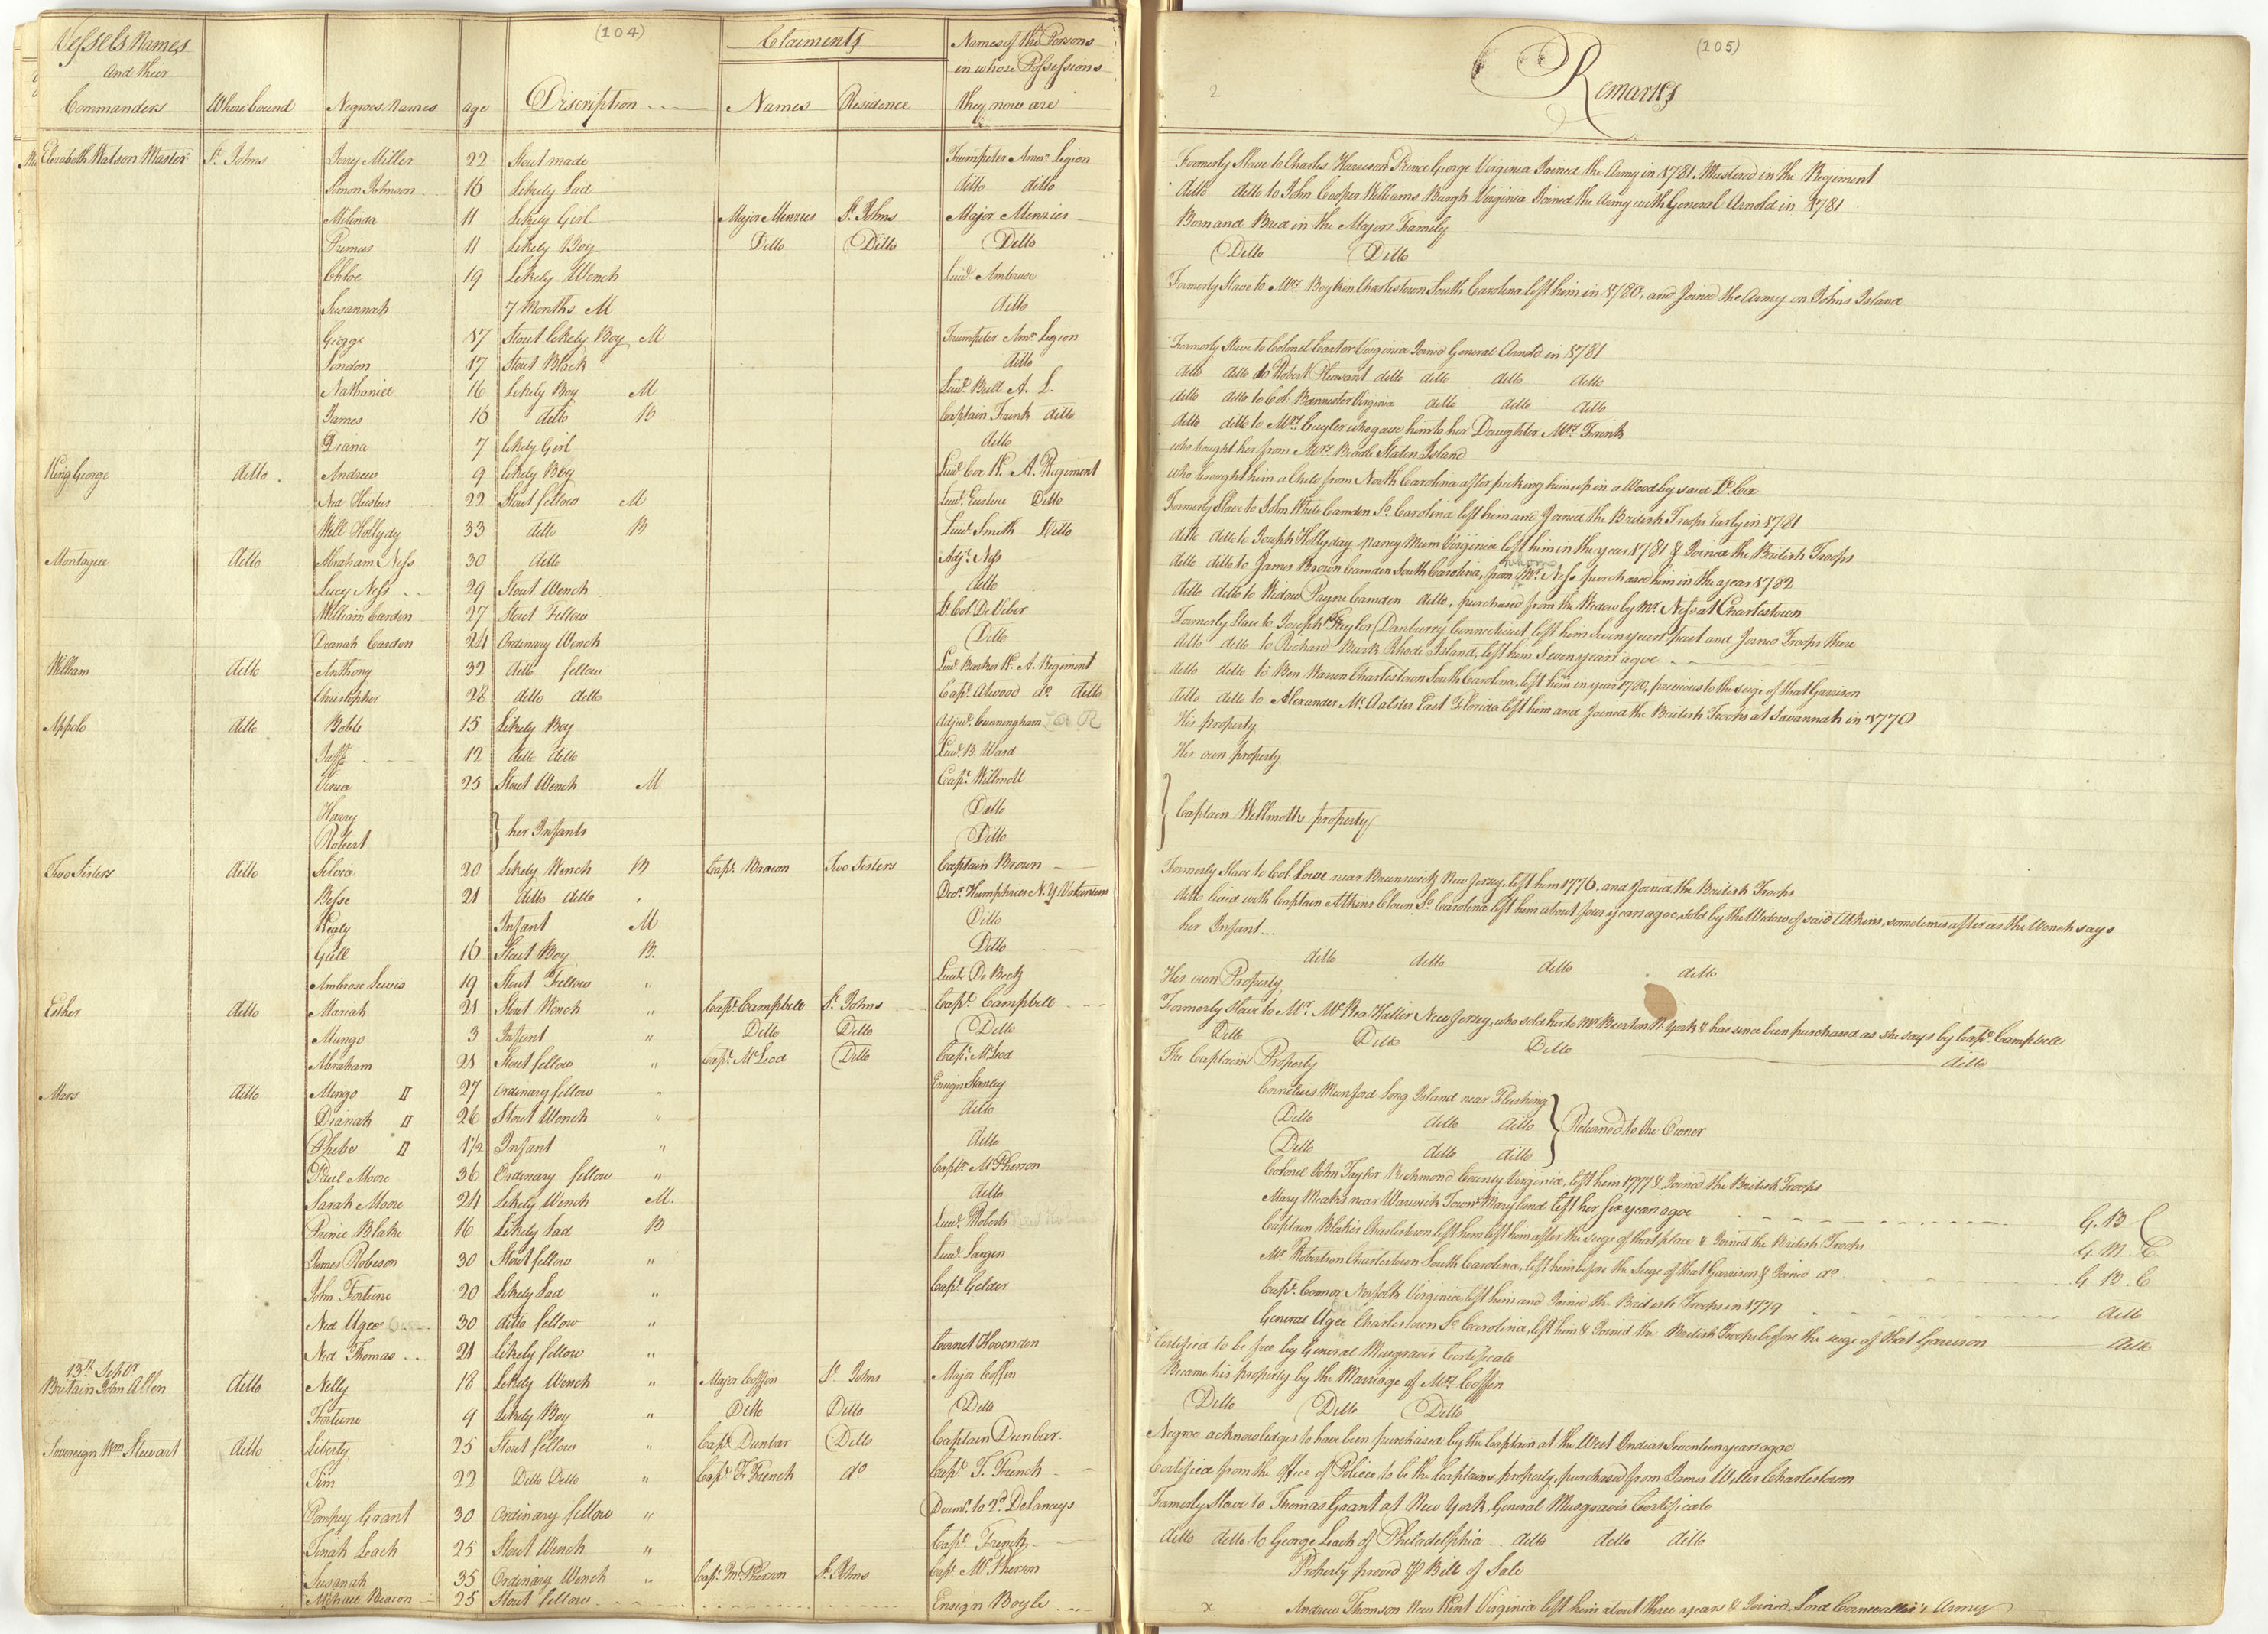 (104)
Vessels Names and their Commanders | Where bound | Negroes Names | age | Discription | Claiments Names | Residence | Names of the Persons in whose Possessions they now are
Elizabeth Watson Master | St. Johns | Jerry Miller | 22 | Stout made | Trumpeter Amer. Legion
Simon Johnson | 16 | Likely Lad | ditto ditto
Milinda | 11 | Likely Girl | Major Menzies | St. Johns | Major Menzies
Primus | 11 | Likely Boy | Ditto | Ditto | Ditto
Chloe | 19 | Likely Wench | Lieut. Ambrose
Susannah | 7 Months M | ditto
George | 17 | Stout likely Boy M | Trumpeter Amr. Legion
London | 17 | Stout Black | ditto
Nathaniel | 16 | Likely Boy M | Lieut. Bull A. L.
James | 16 | ditto B | Captain Frink ditto
Diana | 7 | likely Girl | ditto
King George | ditto | Andrew | 9 | likely Boy | Lieut. Cox K. A. Regiment
Ned | 22 | Stout fellow M | Lieut. Eustace Ditto
Will Hollyday | 33 | ditto B | Lieut. Smith Ditto
Montague | ditto | Abraham Ness | 30 | ditto | Adjt. Ness
Lucy Ness | 29 | Stout Wench | ditto
William Cardon | 27 | Stout Fellow | Lt. Col. De Veber
Dianah Cardon | 24 | Ordinary Wench | Ditto
William | ditto | Anthony | 32 | ditto fellow | Lieut. Barker K. A. Regiment
Christopher | 28 | ditto ditto | Capt. Atwood do. ditto
Appolo | ditto | Bobb | 15 | Likely Boy | Adjut. Cunningham
12 | ditto ditto | Lieut. B. Ward
25 | Stout Wench M | Capt. Willmott
Harry | Ditto
Robert | her Infants | Ditto
Two Sisters | ditto | Silvia | 20 | Likely Wench B | Capt. Brown | Two Sisters | Captain Brown
Besse | 21 | ditto ditto | Doctr. Humphries N. Y. Volunteers
Infant M | Ditto
Gull | 16 | Stout Boy B. | Ditto
Ambrose Lewis | 19 | Stout Fellow " | Lieut. De Beck
Esther | ditto | Mariah | 21 | Stout Wench " | Capt. Campbell | St. Johns | Capt. Campbell
Mungo | 3 | Infant " | Ditto | Ditto | Ditto
Abraham | 21 | Stout fellow " | Capt. McLeod | Ditto | Capt. McLeod
Mars | ditto | Mingo | 27 | Ordinary fellow " | Ensign Stanley
Dianah | 26 | Stout Wench " | ditto
Phebe | 1½ | Infant " | ditto
Moore | 36 | Ordinary fellow " | Captn. McPherson
Sarah Moore | 24 | Likely Wench M. | ditto
Prince Blake | 16 | Likely Lad B | Lieut. Roberts
James Robeson | 30 | Stout fellow " | Lieut. Sargen
John Fortune | 20 | Likely Lad " | Capt. Gelder
Ned Ugee | 30 | ditto fellow "
Ned Thomas | 21 | Likely fellow " | Cornet Hovenden
13th. Septr.
Britain John Allen | ditto | Nelly | 18 | Likely Wench " | Major Coffin | St. Johns | Major Coffin
Fortune | 9 | Likely Boy " | Ditto | Ditto | Ditto
Sovereign Wm. Stewart | ditto | Liberty | 25 | Stout fellow " | Capt. Dunbar | Ditto | Captain Dunbar
Tim | 22 | Ditto Ditto " | Capt. T. French | do | Capt. T. French
Pompey Grant | 30 | Ordinary fellow " | to 2d. Delanceys
Dinah Leach | 25 | Stout Wench " | Capt. French
Susanah | 35 | Ordinary Wench " | Capt. McPherson | St. Johns | Capt. McPherson
Michael Beacon | 25 | Stout fellow | Ensign Boyle
(105)
2
Remarks
Formerly Slave to Charles Harrison Prince George Virginia Joined the Army in 1781 Mustered in the Regiment
ditto ditto to John Cooper Williams Burgh Virginia Joined the Army with General Arnold in 1781
Born and Bred in the Majors Family
Ditto Ditto
Formerly Slave to Mrs. Boykin Charlestown South Carolina left him in 1780, and Joined the Army on Johns Island
Formerly Slave to Colonel Carter Virginia Joined General Arnold in 1781
ditto ditto to Robert Pleasant ditto ditto ditto ditto
ditto ditto to Col. Bannester Virginia ditto ditto ditto
ditto ditto to Mrs. Cuyler who gave him to her Daughter Mrs. Frink
who bought her from Mrs. Staten Island
who brought him a Child from North Carolina after picking him up in a Wood by said Lt. Cox
Formerly Slave to John White Camden So. Carolina left him and Joined the British Troops Early in 1781
ditto ditto to Joseph Hollyday Nancy Mum Virginia left him in the year 1781 & Joined the British Troops
ditto ditto to James Brown Camden South Carolina, from whom Mr. Ness purchased him in the year 1782
ditto ditto to Widow Payne Camden ditto, purchased from the Widow by Mr. Ness at Charlestown
Formerly Slave to Joseph Taylor Danburry Connecticut, left him Seven years past and Joined Troops there
ditto ditto to Richard Burk Rhode Island, left him Seven years agoe
ditto ditto to Ben Warson Charlestown South Carolina, left him in year 1780, previous to the siege of that Garrison
ditto ditto to Alexander McAalster East Florida left him and Joined the British Troops at Savannah in 1770
His property
His own property
Captain Willmotts property
Formerly Slave to Col. Lowe near Brunswick New Jersey, left him 1776 and Joined the British Troops
ditto lived with Captain Atkins Ctown So. Carolina left him about four years agoe sold by the Widow of said Atkins, sometimes after as the Wench says
her Infant
ditto ditto ditto ditto
His own Property
Formerly Slave to Mr. McRea Haller New Jersey, who sold her to Mr. Burton N. York & has since been purchased as she says by Capt. Campbell
Ditto Ditto Ditto ditto
The Captain's Property
Cornelius Munford Long Island near Flushing
Ditto ditto ditto Returned to the Owner
Ditto ditto ditto
Colonel John Taylor Richmond County Virginia, left him 1777 & Joined the British Troops
Mary Meaks near Warwick Town Maryland left her six years agoe G. B C
Captain Blakes Charlestown left him left him after the siege of that place & Joined the British Troops G. M. C.
Mr. Robertson Charlestown South Carolina, left him before the Siege of that Garrison & Joined do G. B. C
Capt. Connor Norfolk Virginia, left him and Joined the British Troops in 1779 ditto
General Ugee Charlestown So. Carolina, left him & Joined the British Troops before the siege of that Garrison ditto
Certified to be free by General Musgraves Certificate
Became his property by the Marriage of Mrs. Coffin
Ditto Ditto Ditto
Negroe acknowledges to have been purchased by the Captain at the West Indias Seventeen years agoe
Certified from the Office of Police to be the Captains property, purchased from James Willer Charlestown
Formerly Slave to Thomas Grant at New York, General Musgraves Certificate
ditto ditto to George Leach of Philadelphia ditto ditto ditto
Property proved & Bill of Sale
x Andrew Thomson New Kent Virginia left him about three years & Joined Lord Cornwallis's Army